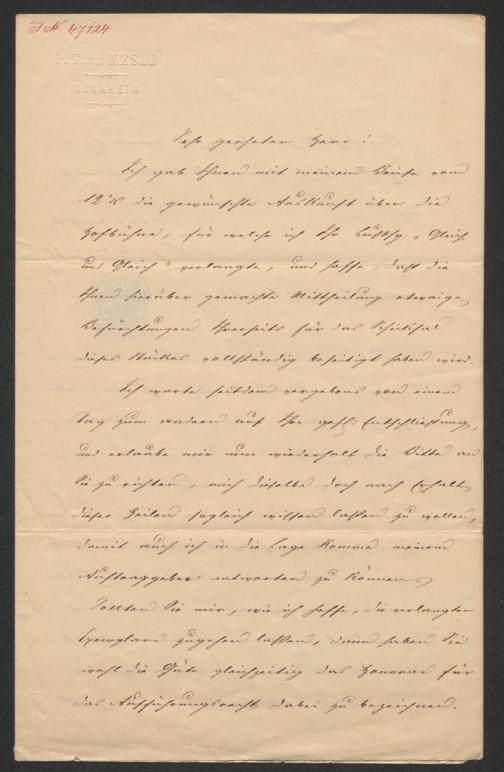 J.N. 47124
P. J. DE NESLE
MANNHEIM
Sehr geehrter Herr!
Ich gab Ihnen mit meinem Briefe vom
12/8 die gewünschte Auskunft über die
Hofbühne, für welche ich Ihr Lustsp. "Gleich
und Gleich" verlangte, und hoffe, daß die
Ihnen hierüber gemachte Mittheilung etwaige
Befürchtungen Ihrerseits für das Schicksal
dieses Stückes vollständig beseitigt haben wird.
Ich warte seitdem vergebens von einem
Tag zum andern auf Ihre gefl: Entschließung,
und erlaube mir nun wiederholt die Bitte an
Sie zu richten, mich dieselbe doch nach Erhalt
dieser Zeilen sogleich wissen lassen zu wollen,
damit auch ich in die Lage komme meinem
Auftraggeber antworten zu können.
Sollten Sie mir, wie ich hoffe, die verlangten
Exemplare zugehen lassen, dann haben Sie
wohl die Güte gleichzeitig das Honorar für
das Aufführungsrecht dabei zu bezeichnen.